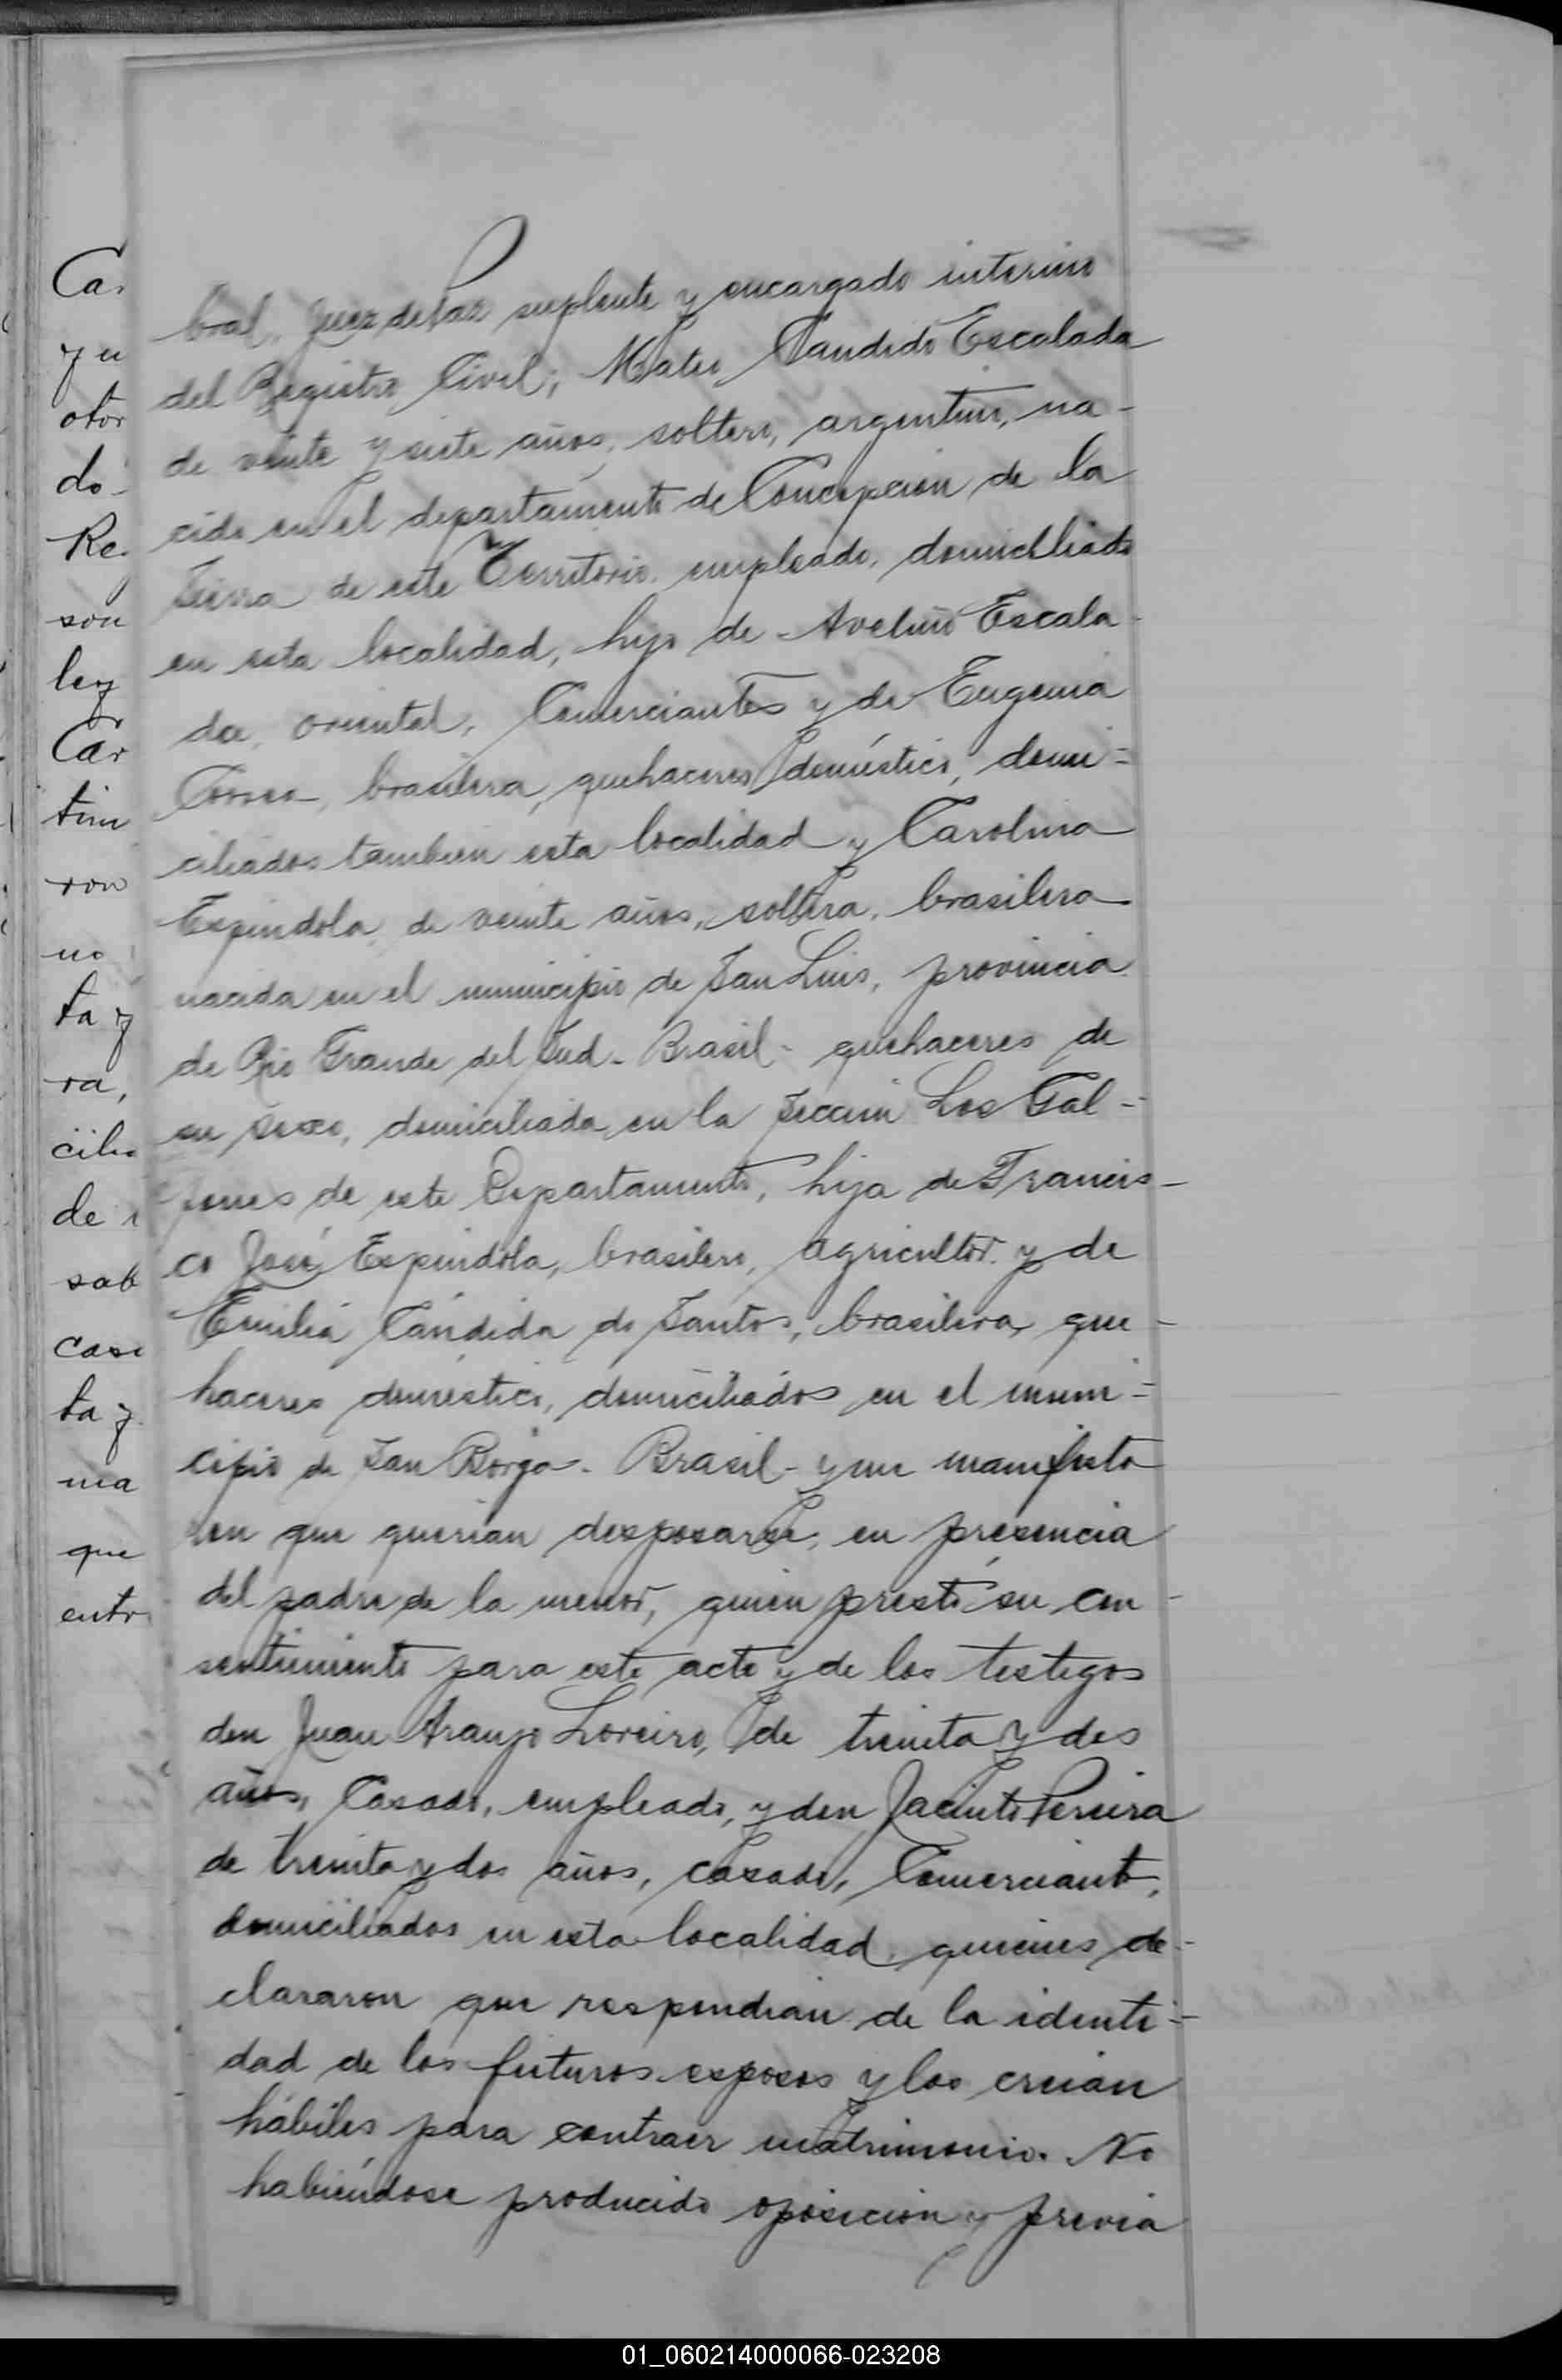 bral, Juez de Paz suplente y encargado interino
del Registro Civil; Mateo Candido Escalada
de veinte y siete años, soltero, argentino, na-
cido en el departamento de Concepcion de la
Sierra de este Territorio, empleado, domicilliado
en esta localidad, hijo de Avelino Escala-
da, oriental, Comerciantes y de Eugenia
Correa, brasilera, quehaceres doméstico, domi=
ciliados tambien esta localidad y Carolina
Espindola, de veinte años, soltera, brasilera
nacida en el municipio de San Luis, provincia
de Rio Grande del Sud - Brasil - quehaceres de
su sexo, domiciliada en la seccion Los Gal-
pones de este Departamento, hija de Francis-
co José Espindola, brasilero, agricultor y de
Emilia Cándida do Santos, brasilera, que-
haceres doméstico, domiciliados en el muni=
cipio de San Borja - Brasil - y me manifesta
ron que querian desposarse, en presencia
del padre de la menor, quien prestó su con-
sentimiento para este acto y de los testigos
don Juan Araujo Loreiro, de treinta y dos
años, Casado, empleado, y don Jacinto Pereira
de treinta y dos años, casado, Comerciante,
domiciliados en esta localidad, quienes de-
clararon que respondian de la identi=
dad de los futuros esposos y los creian
hábiles para contraer matrimonio. No
habiéndose producido oposicion y previa
Ca
y u
otor
do
Re
son
ley
Car
tin
ron
no
ta y
ra,
cilia
de
sab
casa
ta y
ma
que
entr
01_060214000066-023208